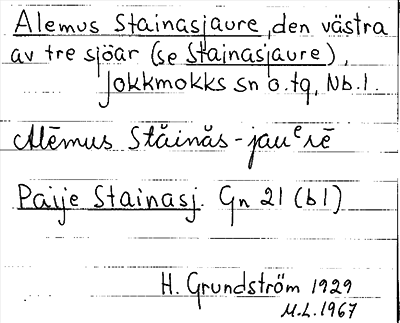 Alemus Stainasjaure, den västra
av tre sjöar (se Stainasjaure),
Jokkmokks sn o. tg, Nb. l.
Alēmus Stǎinǎs-jauᵉrē
Paije Stainasj. Gn 21 (b1)
H. Grundström 1929
M.L. 1967